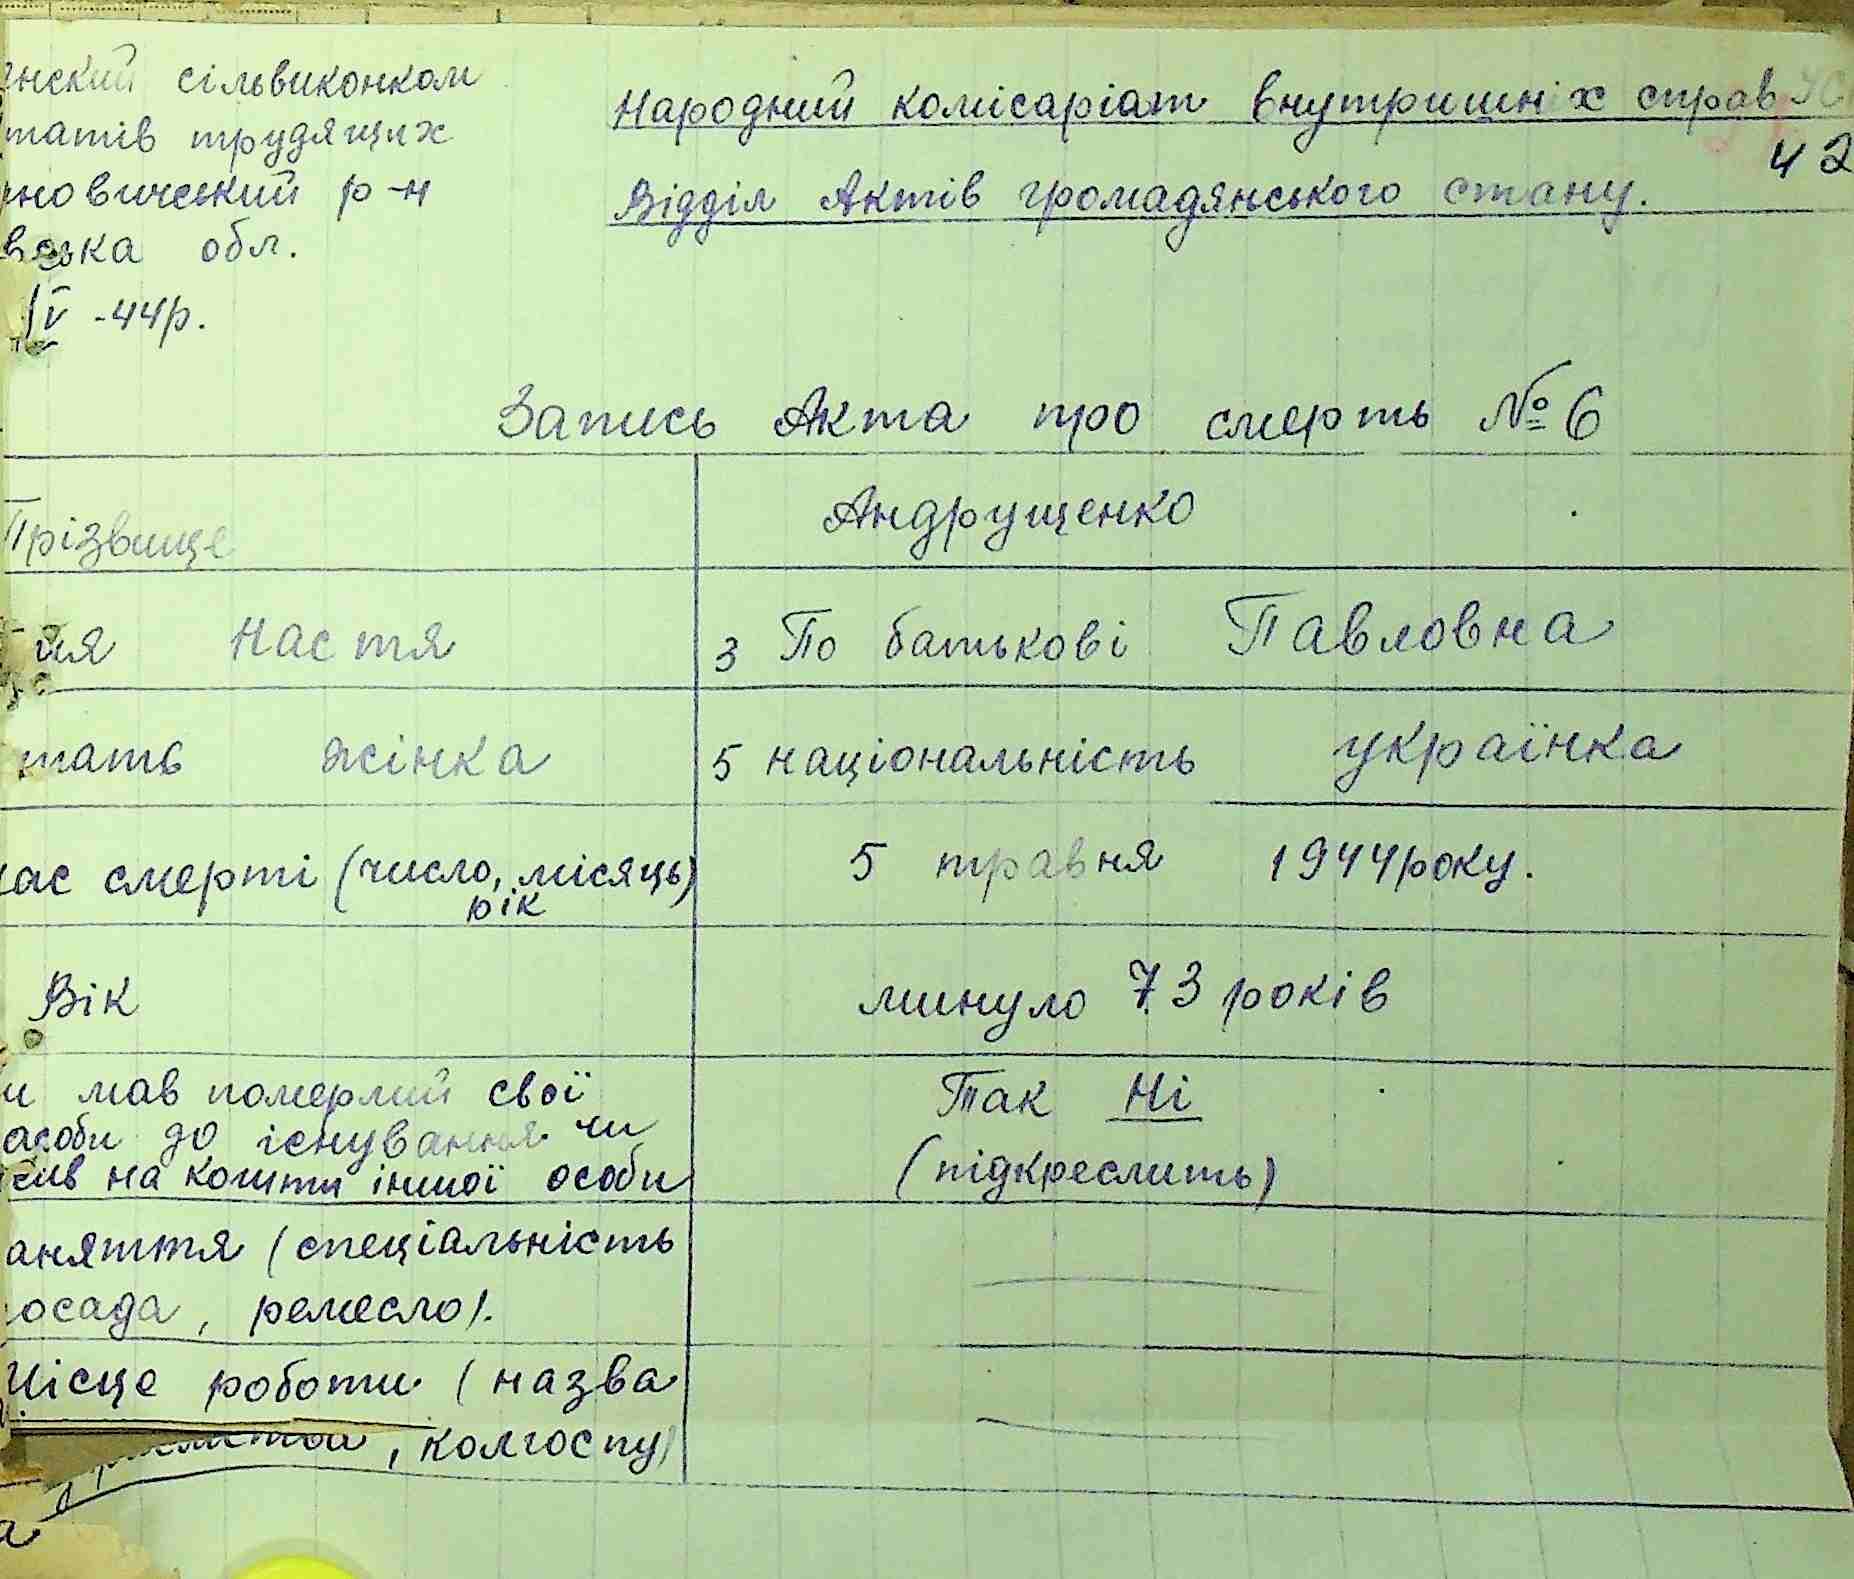 нский сільвиконком
татів трудящих
рновичський р-н
вська обл.
IV -44р.
Народний комісаріат внутришніх справ УС
42
Відділ Актів громадянського стану.
Запись Акта про смерть № 6
Прізвище Андрущенко
мя Настя 3 По батькові Павловна
тать жінка 5 національність українка
час смерті (число, місяць) рік 5 травня 1944 року.
Вік минуло 73 років
и мав помермий свої Так Ні
асоби до існування чи
жив на кошти іншої особи (підкреслить)
аняття (спеціальність
посада, ремесло).
Місце роботи (назва
, колгоспу)